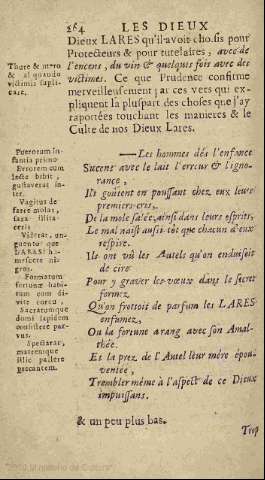 264 LES DIEUX
Dieux LARES qu'il avoit choisis pour
Protecteurs & pour tutelaires, avec de
l'encens, du vin & quelquis fois avec des
victimes. Ce que Prudence confirme
merveilleusement; ai ces vers qui ex-
pliquent la pluspart des choses que j'ay
raportées touchant les manieres & le
Culte de nos Dieux Lares.
Thure & mero
& aliquando
victimis supli-
care.
—Les hommes dés l'enfance
Sucent avec le lait l'erreur & l'igno-
rance,
Ils goûtent en poussant chez eux leurs
premiers cris,
De la mole salée, ainsi dans leurs esprits,
Le mal naist aussi-tôt que chacun d'eux
respire.
Ils ont vû les Autels qu'on enduisoit
de cire
Pour y graver les vœux dans le secret
formez,
Qu'on frottoit de parfum les LARES
enfumez,
Ou la fortune a rang avec son Amal-
thée.
Et la prez de l'Autel leur mére épou-
ventée,
Trembler même à l'aspect de ce Dieux
impuissans.
Puerorum in-
fantia primo
Errorem cum
lacte bibit,
gustaverat in-
ter.
Vagitus de
farre molæ,
saxa illita
ceris
Viderat, un-
guento que
LARES hu-
mescere ni-
gros.
Formatum
fortunæ habi-
tum cum di-
vite cornu,
Sacratumque
domi lapidem
consistere par-
vus.
Spectarat,
matremque
illic pallere
precantem.
& un peu plus bas.
Trop